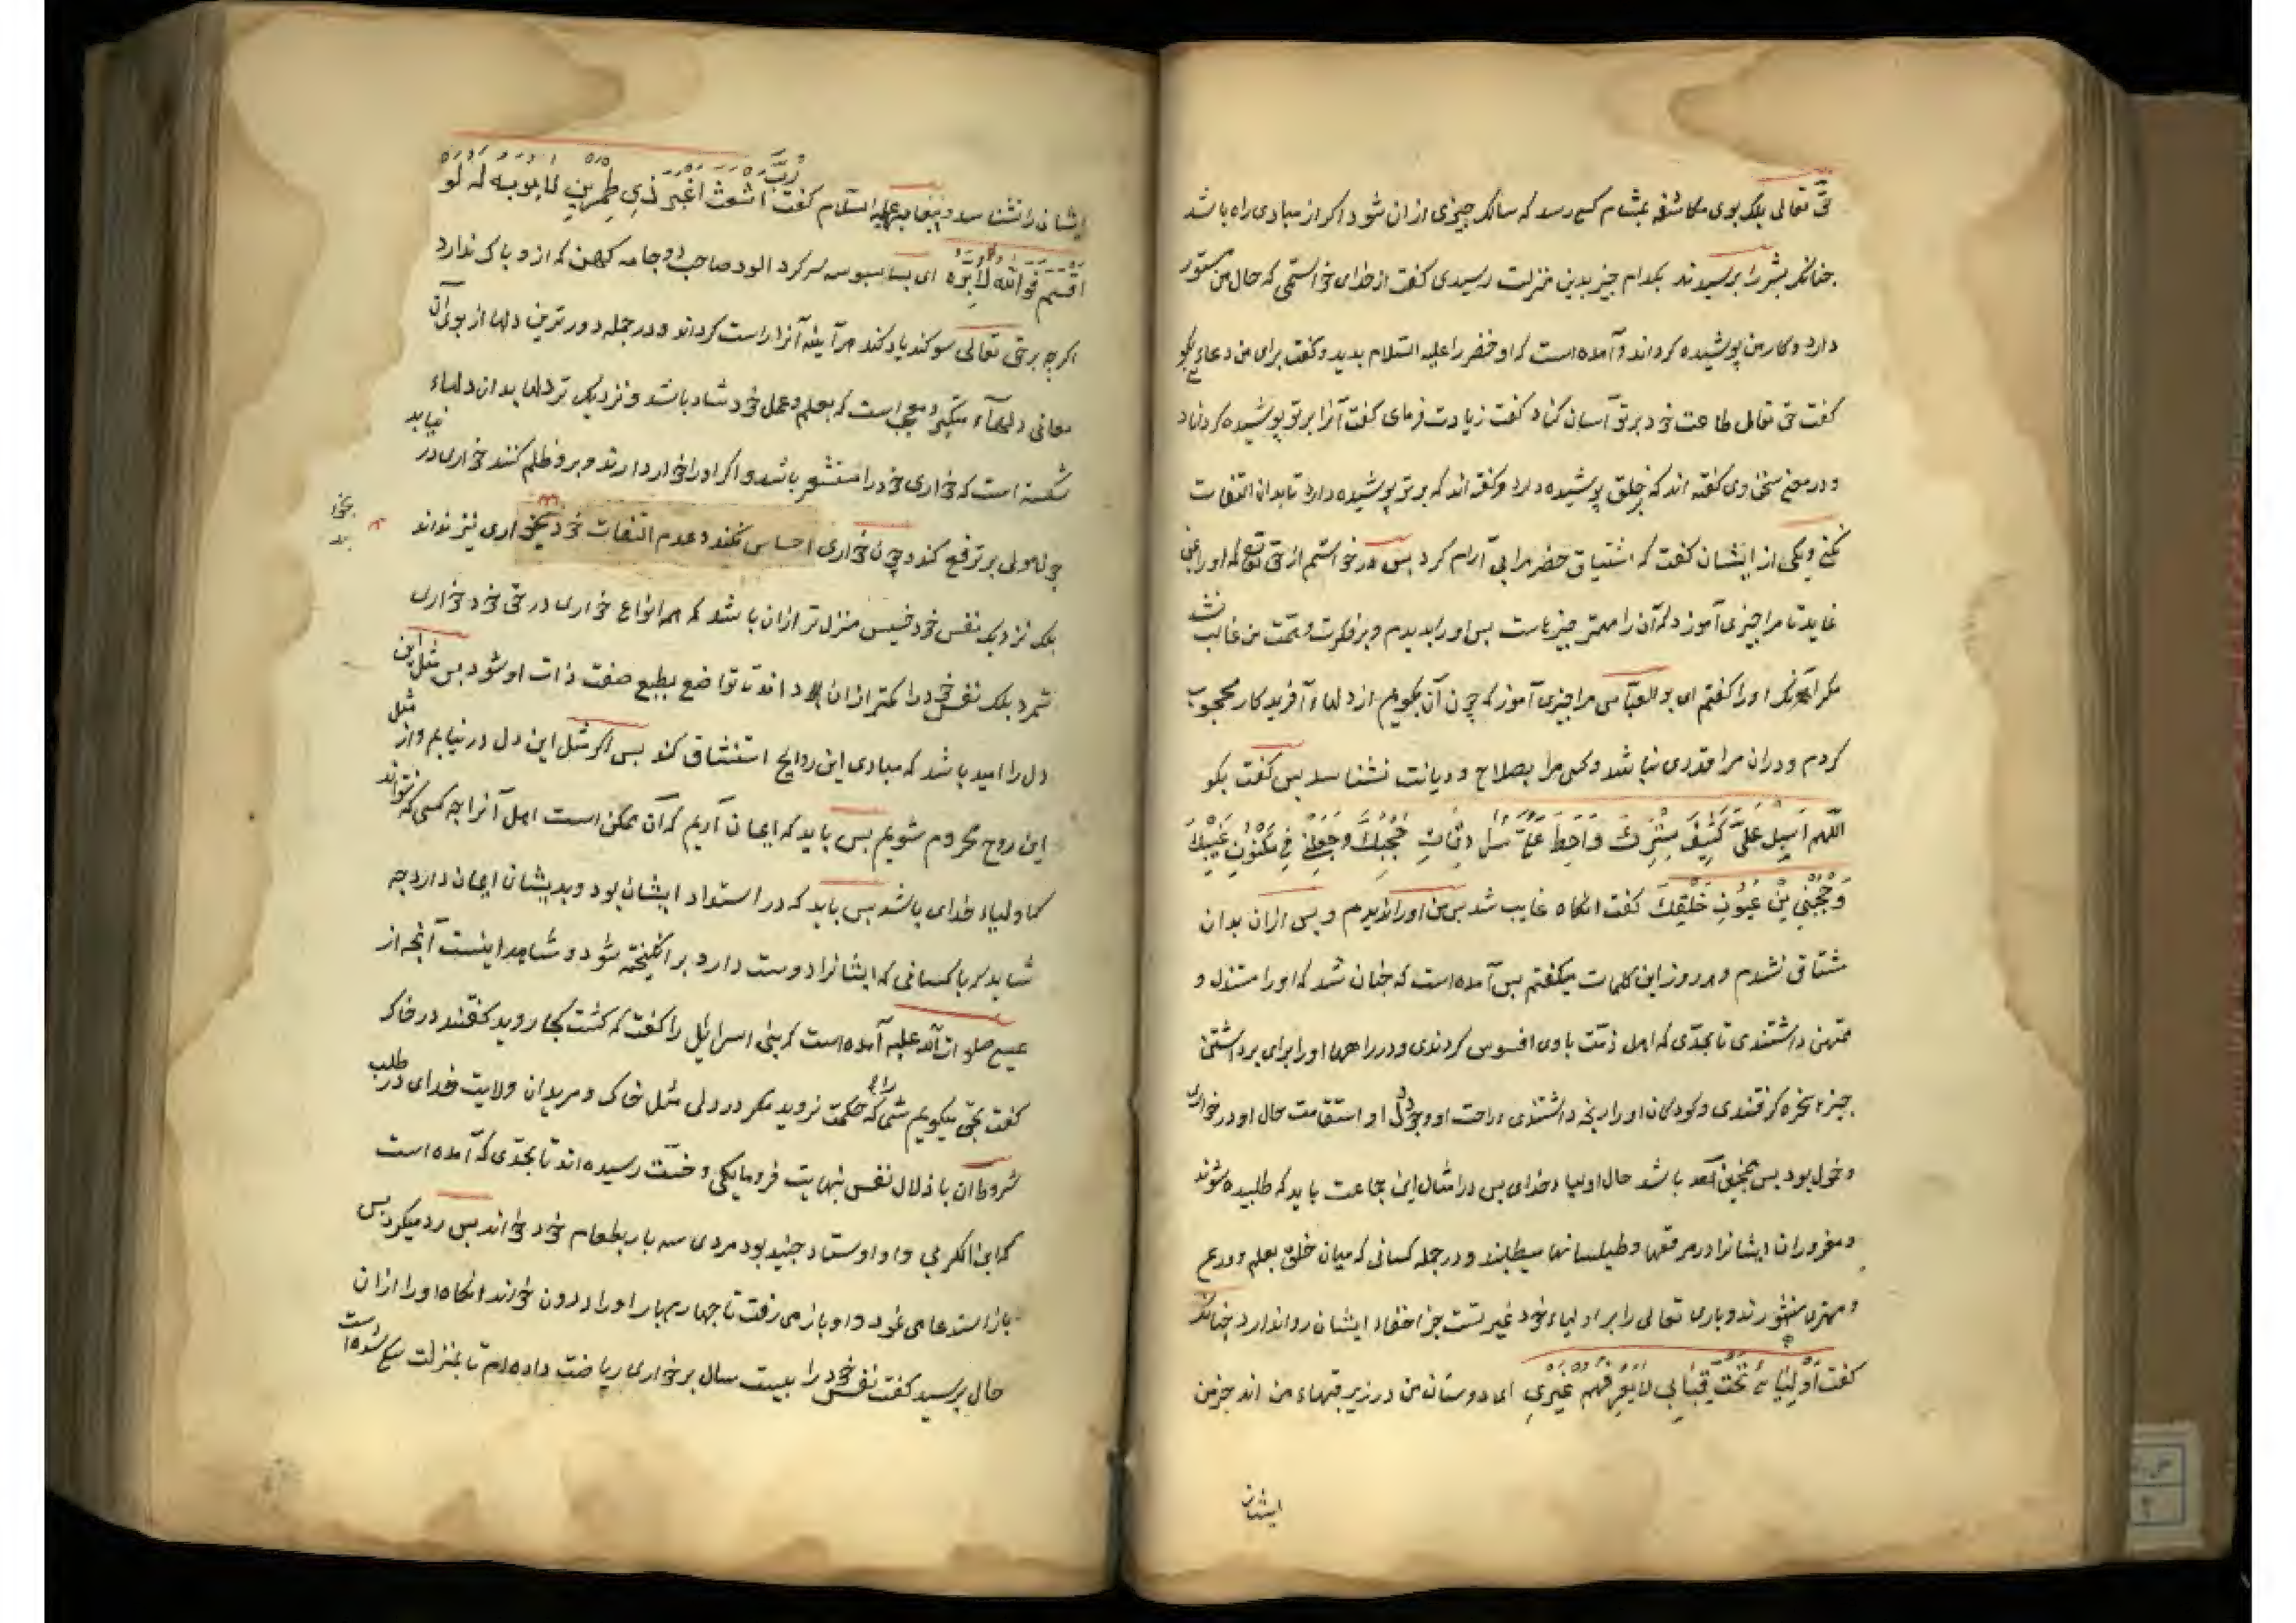 حق تعالی بلک بوی مکاشفه بمشام کسی رسد که سالک چیزی ازان شود اکر از مبادی راه باشد
جنانکه بشر را برسیدند بکدام جیز بدین منزلت رسیدی کفت از خدای خواستمی که حال من مستور
دارد و کار من پوشیده کرداند و آمده است که او خضر را علیه السلام بدید و کفت برای من دعاء بکو
کفت حق تعالی طاعت خود بر تو آسان کناد کفت زیادت فرمای کفت آنرا بر تو پوشیده کرداناد
و در معنی سخن وی کفته اند که از خلق پوشیده دارد و کفته اند که بر تو پوشیده دارد تا بدان التفات
نکنی و یکی از ایشان کفت که اشتیاق خضر مرا بی آرام کرد بس در خواستم از حق تع که او را بمن
نماید تا مرا جیزی آموزد که آن مرا مهمتر جیزهاست بس او را بدیدم و بر فکرت و همت من غالب نشد
مکر آنکه او را کفتم ای بو العباس مرا جیزی آموز که چون آن بکویم از دلهاء آفریدکار محجوب
کردم و دران مرا قدری نباشد و کس مرا بصلاح و دیانت نشناسد بس کفت بکو
اللهم اسبل علیّ کثیف سترک و احط علیّ سرادقات حجبک واجعلنی فی مکنون غیبک
وحجبنی عن عیون خلقک کفت انکاه غایب شد بس من او را ندیدم و بس ازان بدان
مشتاق نشدم و هر روز این کلمات میکفتم بس آمده است که جنان شد که او را مستذل و
ممتهن داشتندی تا بحدی که اهل ذمت با وی افسوس کردندی و در راهها او را برای برداشتن
جیزها سخره کرفتندی و کودکان او را رنجه داشتندی و راحت او و وجود دل او استقامت حال او در خواری
و خمول بود بس همجنین باشد حال اولیاء خدای بس در امثال این جماعت باید که طلبیده شوند
و مغروران ایشانرا در مرقعها و طیلسانها میطلبند و در جمله کسانی که میان خلق بعلم و ورع
و مهتری مشهورند و باری تعالی را بر اولیاء خود غیرتست جز اخفاء ایشان روا ندارد جنانکه
کفت اولیائی تحت قبابی لا یعرفهم غیری ای دوستان من در زیر قبهاء من اند جز من
ایشان
ایشان را نشناسد و پیغامبر علیه السلام کفت رب اشعث اغبر ذی طمرین لا یوبه له لو
اقسم علی الله لابره ای بسا سر کرد الود صاحب دو جامه کهن که ازو باک ندارد
اکر جه بر حق تعالی سوکند یاد کند هر آینه آنرا راست کرداند و در جمله دورترین دلها از بوی آن
معانی دلهاء متکبر و معجب است که بعلم و عمل خود شاد باشد و نزدیک تر دلها بدان دلهاء
شکسته است که خواری خود را مستشعر باشد و اکر او را خوار دارند و برو ظلم کنند خواری در نیابد
جو مولی برو ترفع کند و چون خواری احساس نکند و عدم التفات خود بخواری نیز نداند
بلک نزدیک نفس خود خسیس منزل تر ازان باشد که همه انواع خواری در حق خود خواری
شمرد بلک نفس خود را کمتر ازان داند تا تواضع بطبع صفت ذات او شود بس مثل این
دل را امید باشد که مبادی این روایح استنشاق کند بس اکر مثل این دل در نیابیم و از مثل
این روح محروم شویم بس باید که ایمان آریم که آن ممکن است اهل آنرا جه کسی که نتواند
که اولیاء خدای باشد بس باید که دوستدار ایشان بود و بدیشان ایمان دارد جه
شاید که با کسانی که ایشانرا دوست دارد برانکیخته شود و شاهد اینست آنجه از
عیسی صلوات الله علیه آمده است که بنی اسرائیل را کفت که کشت کجا روید کفتند در خاک
کفت بحق میکویم شما را که حکمت نروید مکر در دلی مثل خاک و مریدان ولایت خدای در طلب
شروط آن باذلال نفس بنهایت فرومایکی و خست رسیده اند تا بحدی که آمده است
که ابن الکربی و او اوستاد جنید بود مردی سه بار بطعام خود خواند بس رد میکرد بس
باز استدعا می نمود و او باز می رفت تا جهارم بار او را درون خواند انکاه او را ازان
حال برسید کفت نفس خود را بیست سال بر خواری ریاضت داده ام تا بمنزلت سک شده است
بخوا